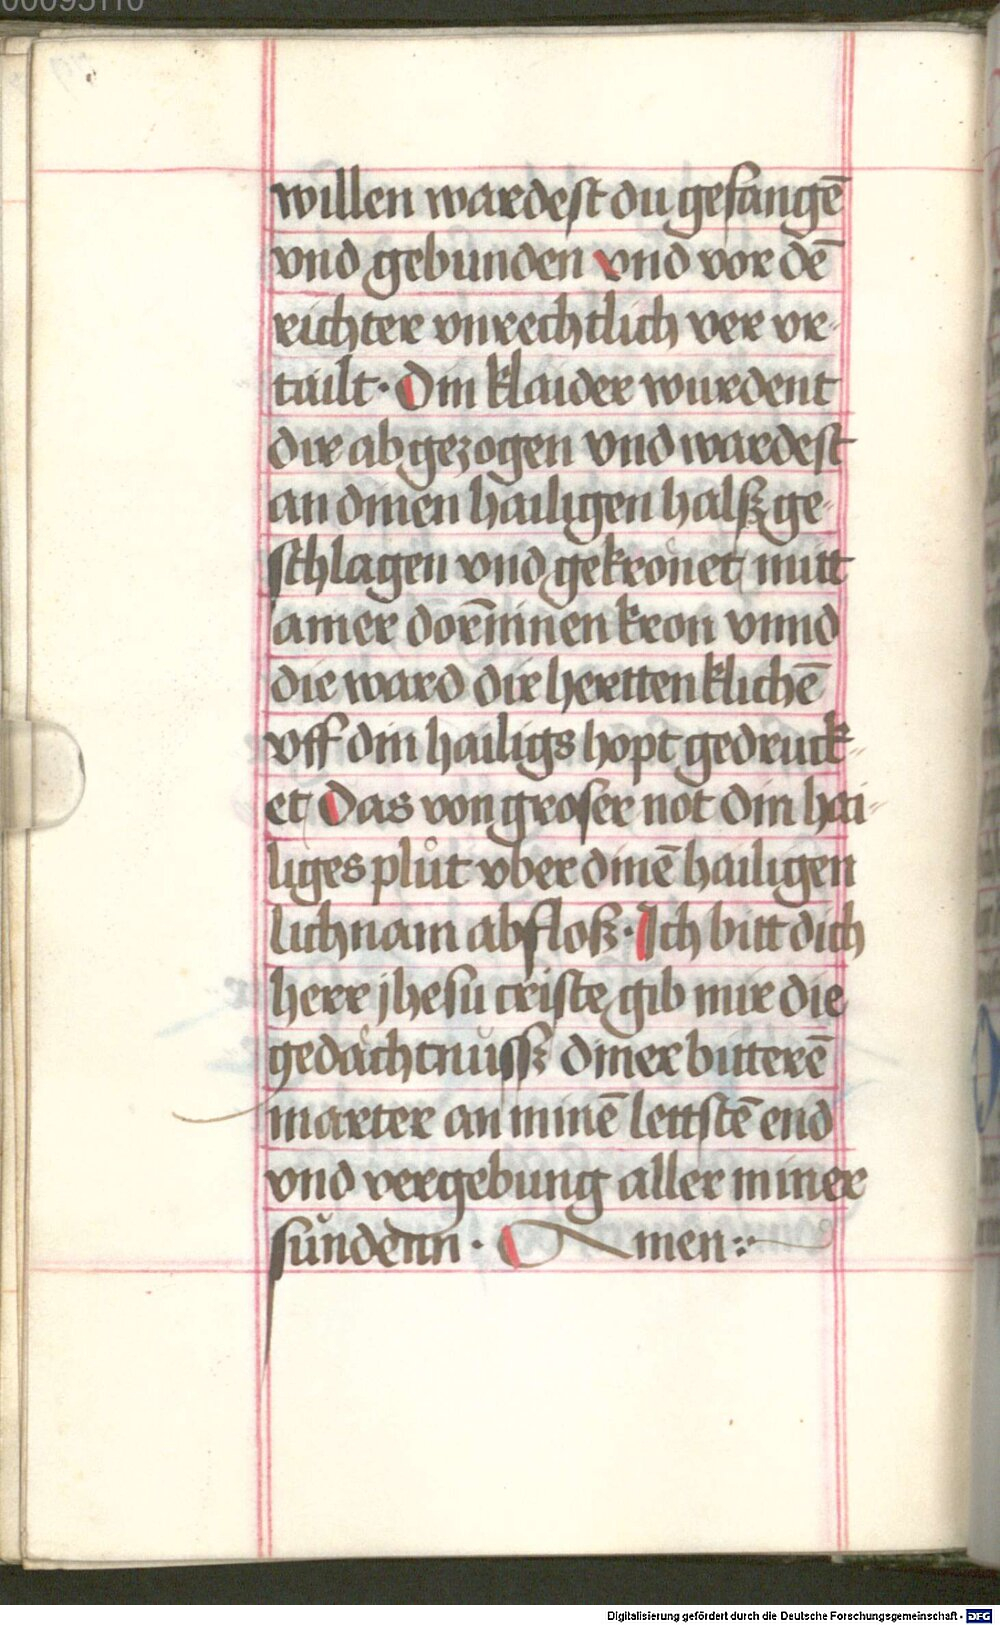 willen wardest du gefangē
vnd gebunden vnd vor dē
richter vnrechtlich ver vr-
tailt · Din klaider wurdent
dir ab gezogen vnd wardest
an dinen hailigen halß ge-
schlagen vnd gekrönet mitt
ainer dorn̄inen kron vnnd
die ward dir herttenklichē
vff din hailigs hopt gedruck-
et Das von groser not din hai-
liges plůt vber dinē hailigen
lichnam abfloß · Ich bitt dich
herr jhesu criste gib mir die
gedächtnüssz diner bitterē
marter an minē lettstē end
vnd vergebung aller miner
sündenn · Amen :~
Digitalisierung gefördert durch die Deutsche Forschungsgemeinschaft - DFG